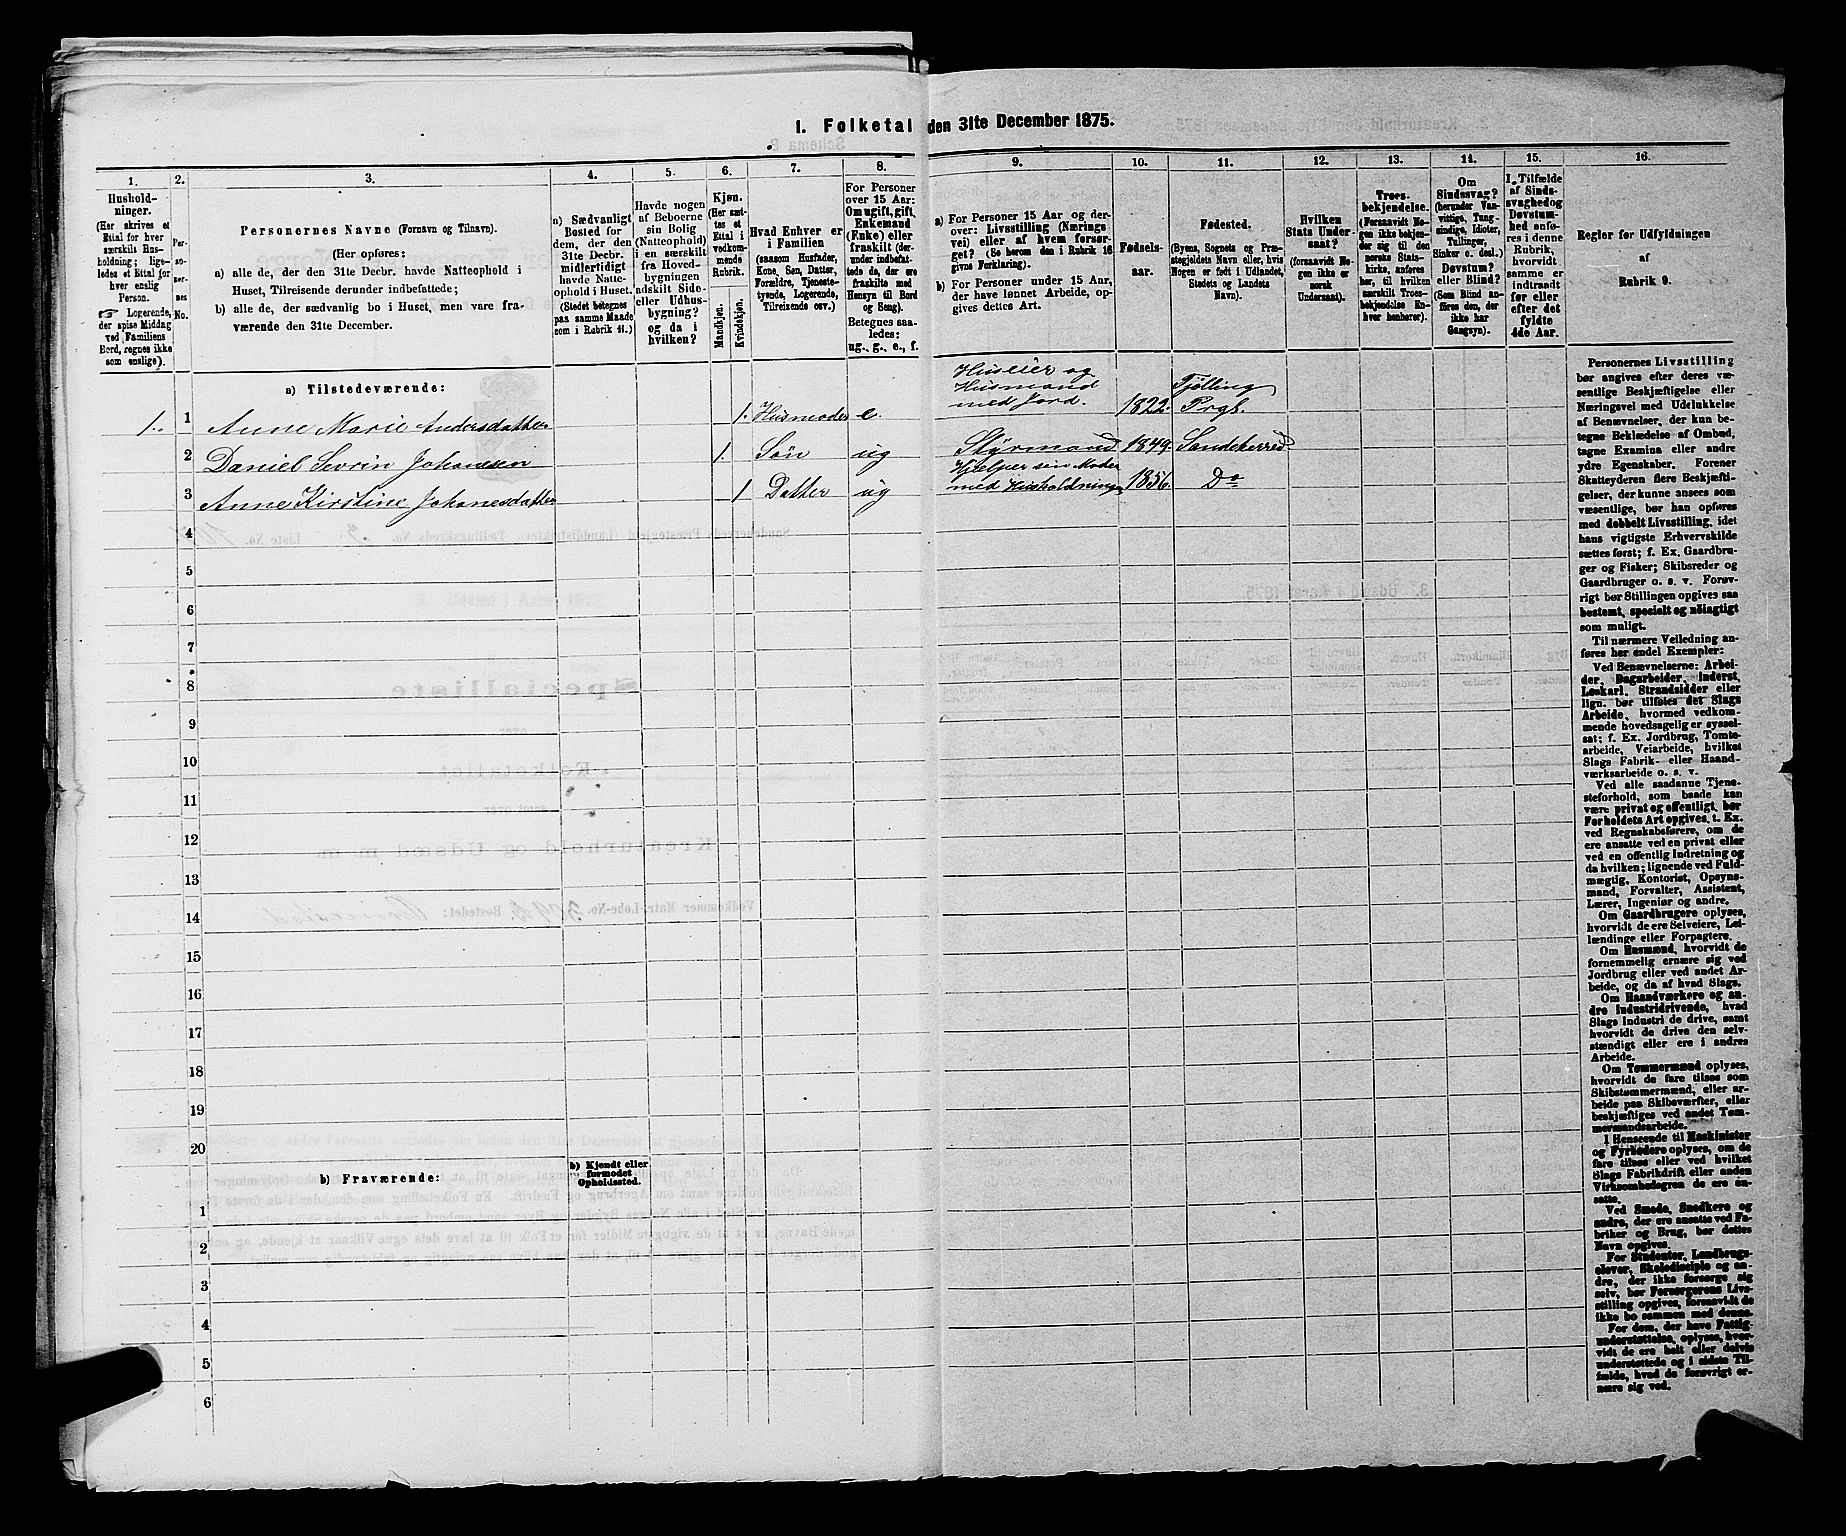 I. Folketal den 31te December 1875.
1. 2. 3. 4. 5. 6. 7. 8. 9. 10. 11. 12. 13. 14. 15. 16.
Hushold-
ninger.
(Her skrives et
Ettal for hver
særskilt Hus-
holdning; lige-
ledes et Ettal for
hver enslig
Person.
☞ Logerende,
der spise Middag
ved Familiens
Bord, regnes ikke
som enslige).
Per-
so-
ner-
nes
No.
Personernes Navne (Fornavn og Tilnavn).
(Her opføres:
a) alle de, der den 31te Decbr. havde Natteophold i
Huset, Tilreisende derunder indbefattede;
b) alle de, der sædvanlig bo i Huset, men vare fra-
værende den 31te December.
a) Sædvanligt
Bosted for
dem, der den
31te Decbr.
midlertidigt
havde Natte-
ophold i Huset.
(Stedet betegnes
paa samme Maade
som i Rubrik 11.)
Havde nogen
af Beboerne
sin Bolig
(Natteophold)
i en særskilt
fra Hoved-
bygningen
adskilt Side-
eller Udhus-
bygning?
og da i
hvilken?
Kjøn.
(Her sæt-
tes et
Ettal i
vedkom-
mende
Rubrik.
Mandkjøn.
Kvindekjøn.
Hvad Enhver er
i Familien
(saasom Husfader,
Kone, Søn, Datter,
Forældre, Tjeneste-
tyende, Logerende,
Tilreisende osv.)
For Personer
over 15 Aar:
Om ugift, gift,
Enkemand
(Enke) eller
fraskilt (der-
under indbefat-
tede de, der ere
fraskilte med
Hensyn til Bord
og Seng).
Betegnes saa-
ledes:
ug., g., e., f.
a) For Personer 15 Aar og der-
over: Livsstilling (Nærings-
vei) eller af hvem forsør-
get? (Se herom den i Rubrik 16
givne Forklaring).
b) For Personer under 15 Aar,
der have lønnet Arbeide, op-
gives dettes Art.
Fødsels-
aar.
Fødested.
(Byens, Sognets og Præ-
stegjeldets Navn eller, hvis
Nogen er født i Udlandet,
Stedets og Landets
Navn).
Hvilken
Stats Under-
saat?
(foraavidt No-
gen ikke er
norsk
Undersaat).
Troes-
bekjendelse.
(Forsaavidt No-
gen ikke bekjen-
der sig til den
norske Stats-
kirke, anføres
her, til hvilken
særskilt Troes-
bekjendelse En-
hver henhører).
Om
Sindssvag?
(herunder Van-
vittige, Tung-
sindige, Idioter,
Tullinger,
Sinker o. desl.)
Døvstum?
eller Blind?
(Som Blind an-
føres den, der
ikke har
Gangsyn).
I Tilfælde
af Sinds-
svaghed og
Døvstum-
hed anfø-
res i denne
Rubrik,
hvorvidt
samme er
indtraadt
før eller
efter det
fyldte
4de Aar.
Regler for Udfyldningen
af
Rubrik 9.
a) Tilstedeværende:
1. 1 Anne Marie Andersdatter 1. Husmoder e. Huseier og Husmand med Jord. 1822. Tjølling Prgt.
2 Daniel Sevrin Johanesen 1. Søn ug Styrmand 1849. Sandeherred
3 Anne Kirstine Johanesdatter 1 Datter ug Hjelper sin Moder med Husholdningen 1856. Do
4
5
6
7
8
9
10
11
12
13
14
15
16
17
18
19
20
b) Fraværende:
b) Kjendt eller
formodet
Opholdssted.
1
2
3
4
5
6
Personernes Livsstilling
bør angives efter deres væ-
sentlige Beskjæftigelse eller
Næringsvei med Udelukkelse
af Benævnelser, der kun be-
tegne Beklædelse af Ombud,
tagne Examina eller andre
ydre Egenskaber. Forener
Skatteyderen flere Beskjæfti-
gelser, der kunne ansees som
væsentlige, bør han opføres
med dobbelt Livsstilling, idet
hans vigtigste Erhvervskilde
sættes først; f. Ex. Gaardbru-
ger og Fisker; Skibsreder og
Gaardbruger o. s. v. Forøv-
rigt bør Stillingen opgives saa
bestemt, specielt og nöiagtigt
som muligt.
Til nærmere Veiledning an-
føres her endel Exempler:
Ved Benævnelserne: Arbei-
der, Dagarbeider, Inderst,
Løskarl, Strandsidder eller
lign. bør tilføies det Slags
Arbeide, hvormed vedkom-
mende hovedsagelig er syssel-
sat; f. Ex. Jordbrug, Tomte-
arbeide, Veiarbeide, hvilket
Slags Fabrik- eller Haand-
værksarbeide o. s. v.
Ved alle saadanne Tjene-
steforhold, som baade kan
være privat og offentligt, bør
Forholdets Art opgives, t. Ex.
ved Regnskabsførere, om de
ere ansatte ved en privat eller
ved en offentlig Indretning og
da hvilken; lignende ved Fuld-
mægtig, Kontorist, Opsyns-
mand, Forvalter, Assistent,
Lærer, Ingeniør og andre.
Om Gaardbrugere oplyses,
hvorvidt de ere Selveiere, Lei-
lændinge eller Forpagtere.
Om Husmænd, hvorvidt de
fornemmelig ernære sig ved
Jordbrug eller ved andet Ar-
beide, og da af hvad Slags.
Om Haandværkere og an-
dre Industridrivende, hvad
Slags Industri de drive, samt
hvorvidt de drive den selv-
stændigt eller ere i andres
Arbeide.
Om Tømmermænd oplyses,
hvorvidt de fare tilsøs som
Skibstømmermænd, eller ar-
beide paa Skibsværfter, eller
beskjæftiges ved andet Tøm-
mermandsarbeide.
I Henseende til Maskinister
og Fyrbødere oplyses, om de
fare tilsøs eller ved hvilket
Slags Fabrikdrift eller anden
Virksomhedsgren de ere an-
satte.
Ved Smede, Snedkere og
andre, der ere ansatte ved Fa-
briker og Brug, bør dettes
Navn opgives.
For Studenter, Landbrugs-
elever, Skoledisciple og an-
dre, der ikke forsørge sig
selv, bør Forsørgerens Livs-
stilling opgives, forsaavidt de
ikke bo sammen med denne.
For dem, der have Fattig-
understøttelse, oplyses, hvor-
vidt de ere helt eller delvis
understøttede og i sidste Til-
fælde, hvad de forøvrigt er-
nære sig ved.